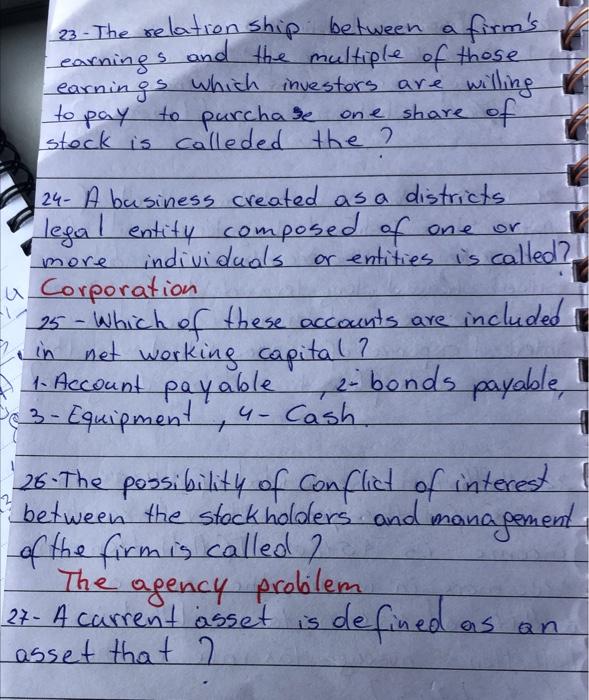 23-The relation ship between a firm's
earnings and the multiple of those
earnings which investors are willing
to pay to purchase one share of
stock is calleded the ?
24- A business created as a districts
legal entity composed of one or
more individuals or entities is called?
Corporation
25-Which of these accounts are included
in net working capital?
1-Account payable , 2- bonds payable,
3-Equipment , 4- Cash.
26-The possibility of Conflict of interest
between the stockholders and management
of the firm is called ?
The agency problem
27- A current asset is defined as an
asset that ?